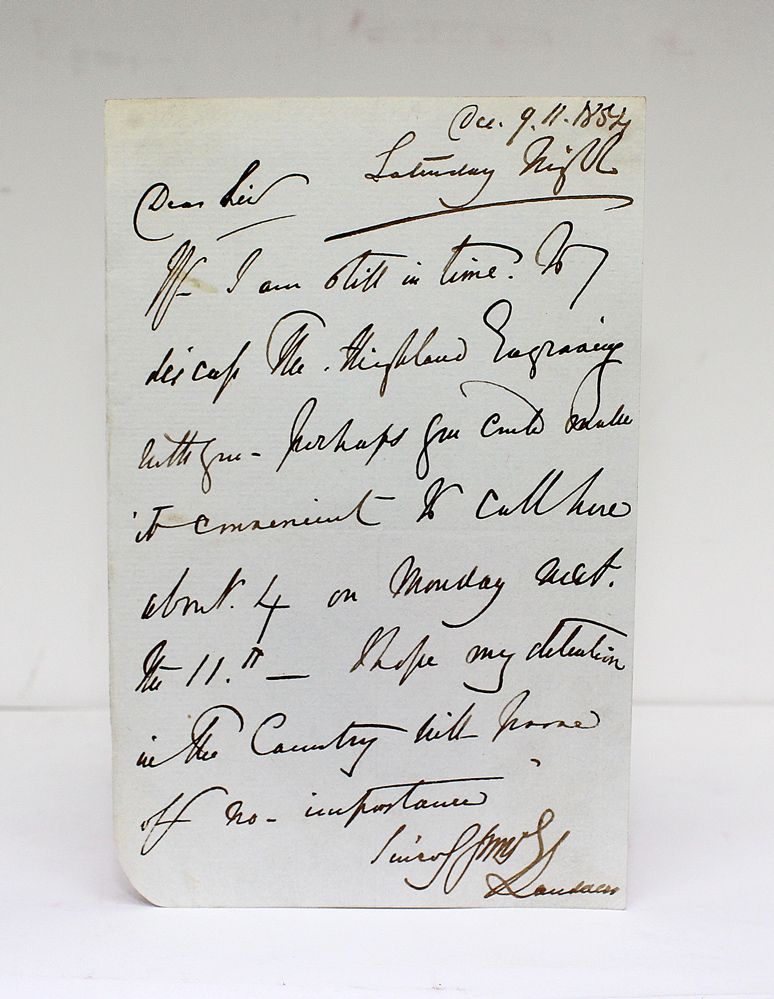 Dec. 9. 11. 1854
Saturday Night
Dear Sir
If I am still in time. to
discuss the Highland Engraving
with you - perhaps you could make
it convenient to call here
about. 4 on Monday next.
the 11.th - I hope my detention
in the Country will prove
of no - importance
Sincerely yours E
Landseer